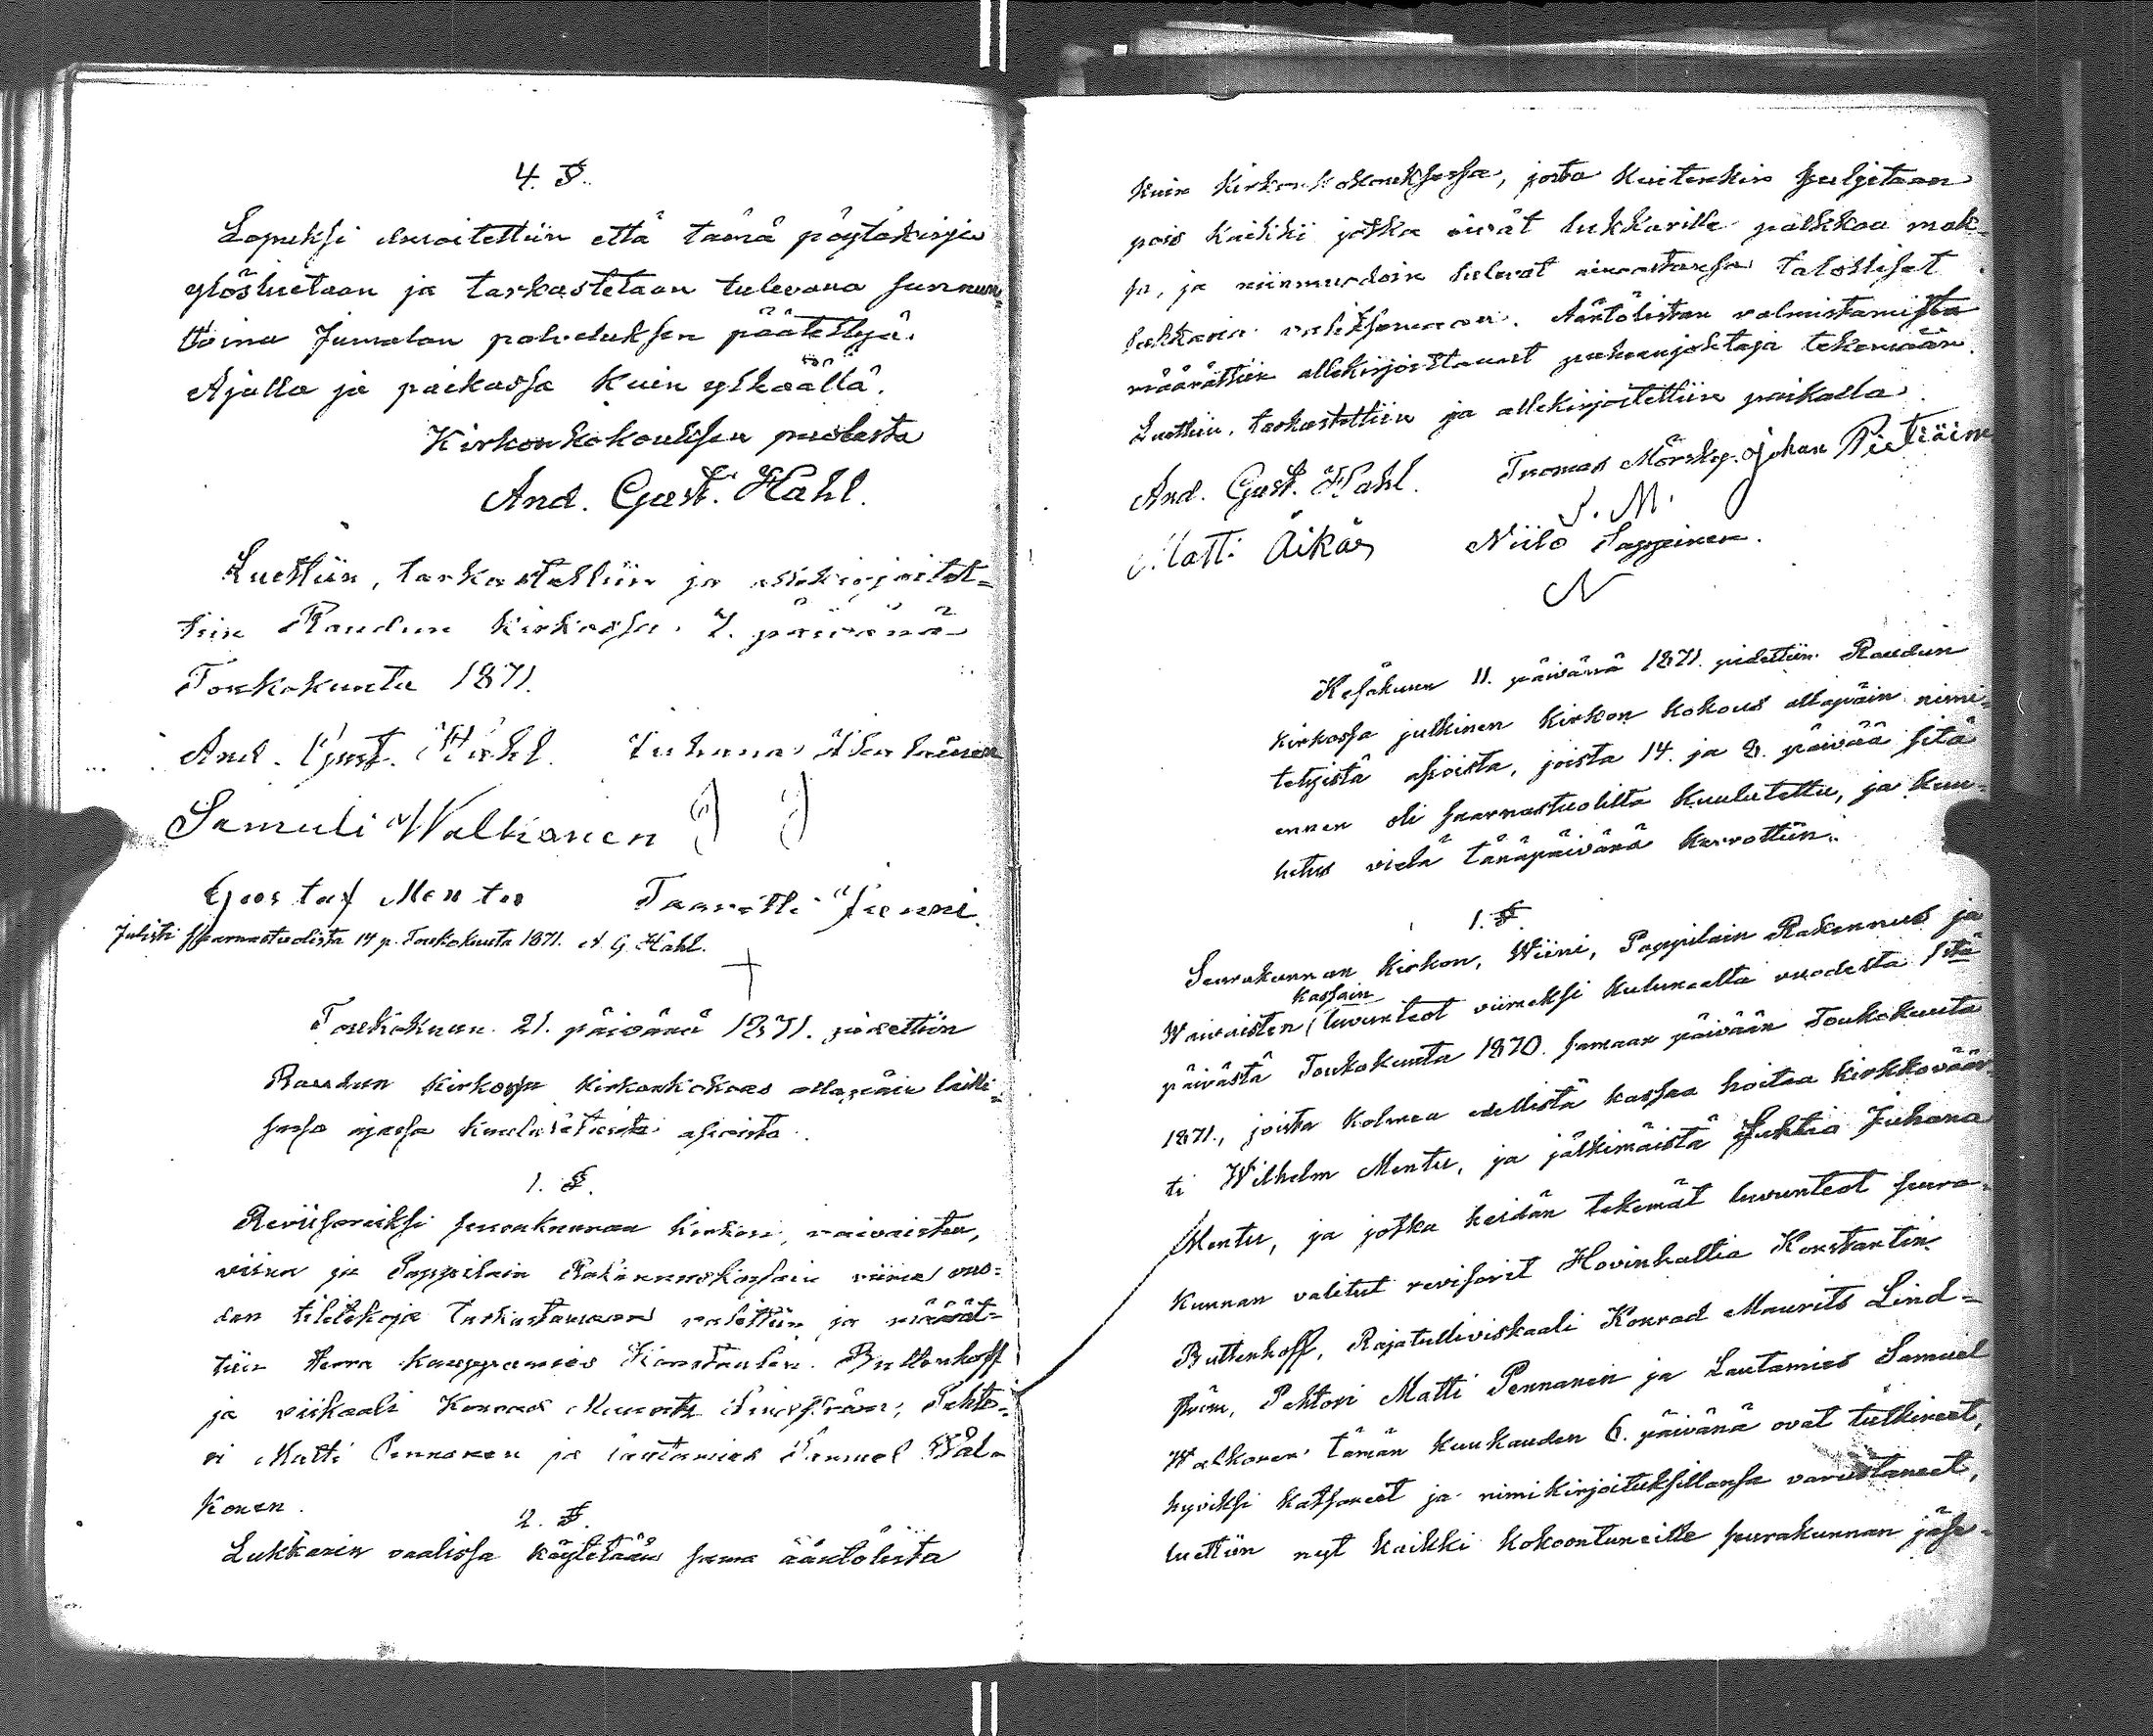 4. §.
Lopuksi ilmoitettiin että tämä pöytäkirja
ylösluetaan ja tarkastetaan tulevana sunnun-
taina Jumalan palveluksen päätettyä.
Ajalla ja paikassa kuin ylhäällä.
Kirkonkokouksen puolesta
And. Gust. Hahl.
Luettiin, tarkastettiin ja allekirjoitet=
tiin Raudun kirkossa. 7. päivänä
Toukokuuta 1871.
And. Gust. Hahl. Juhana
Samuli Walkonen
Goostaf Mentu Taavetti
Julisti Saarnastuolista 14 p. Toukokuuta 1871. A. G. Hahl.
Toukokuun 21. päivänä 1871. pidettiin
Raudun kirkossa kirkonkokous allapäin lailli=
sessa ajassa kuulutetuista asioista.
1. §.
Reviisoreiksi seurakunnan kirkon, vaivaisten,
viinu ja Pappilain Rakennuskassain viime vuo=
den tilitekoja tarkastamaan valittiin ja määrät=
tiin Herra kauppamies Konstantin Buttenhoff
ja viskaali Konrad Maurits Lindström, Pehto=
ri Matti Pennanen ja lautamies Samuel Wal=
konen.
2. §.
Lukkarin vaalissa käytetään sama ääntölista
kuin kirkonkokouksessa, josta kuitenkin suljetaan
pois kaikki jotka eivät lukkarille palkkaa mak-
sa, ja niinmuodoin tulevat ainoastansa talolliset
lukkaria valitsemaan. Ääntölistan valmistamista
määrättiin allekirjoittanut puheenjohtaja tekemään.
Luettiin, tarkastettiin ja allekirjoitettiin paikalla.
And. Gust. Hahl. Tuomas Mörsky. Johan Pietiäinen
T. M.
Matti Äikäs Niilo Tappinen.
N
Kesäkuun 11. päivänä 1871. pidettiin Raudun
kirkossa julkinen kirkon kokous allapäin nimi-
tetyistä asioista, joista 14. ja 8. päivää sitä
ennen oli saarnastuolilta kuulutettu, ja kuu-
lutus vielä tänäpäivänä kerrottiin.
1. §.
Seurakunnan Kirkon, Wiini, Pappilain Rakennus ja
kassain
Waivaisten luvunteot viimeksi kuluneelta vuodesta 1stä
päivästä Toukokuuta 1870. samaan päivään Toukokuuta
1871., joista kolmea edellistä kassaa hoitaa kirkkovääri-
ti Wilhelm Mentu, ja jälkimäistä Suntio Juhana
Mentu, ja jotka heidän tekemät luvunteot seura-
kunnan valitut revisorit Hovinhaltia Konstantin
Buttenhoff, Rajatulliviskaali Konrad Maurits Lind=
ström, Pehtori Matti Pennanen ja Lautamies Samuel
Walkonen tämän kuukauden 6. päivänä ovat tutkineet,
hyviksi katsoneet ja nimikirjoituksillansa varustaneet,
luettiin nyt kaikki kokoontuneille seurakunnan jäse-